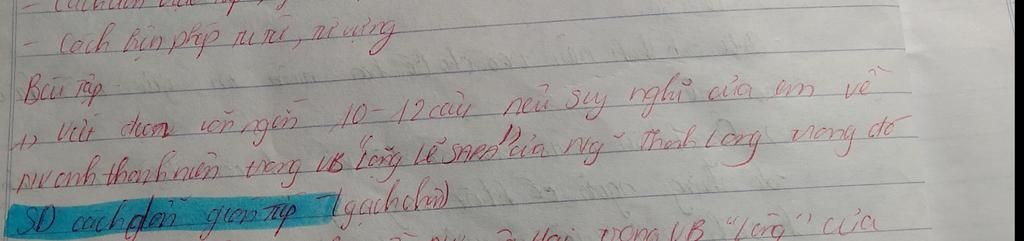 - Cách biện pháp tu từ, từ vựng
Bài Tập
1) Viết đoạn văn ngắn 10-12 câu nêu suy nghĩ của em về
NV anh thanh niên trong VB "Lặng lẽ SAPA" của Ng Thành Long trong đó
SD cách dẫn gián tiếp (gạch chân)
trong VB "Lặng" của